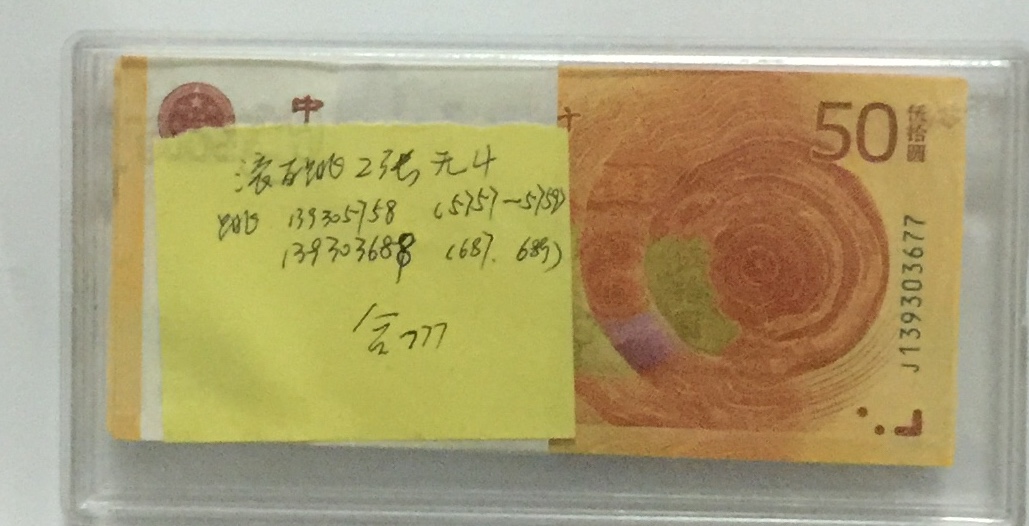 中
50
伍拾圆
J139303677
滚百跳2张无4
跳 139305758 (5757~5759)
139303688 (687. 689)
含777